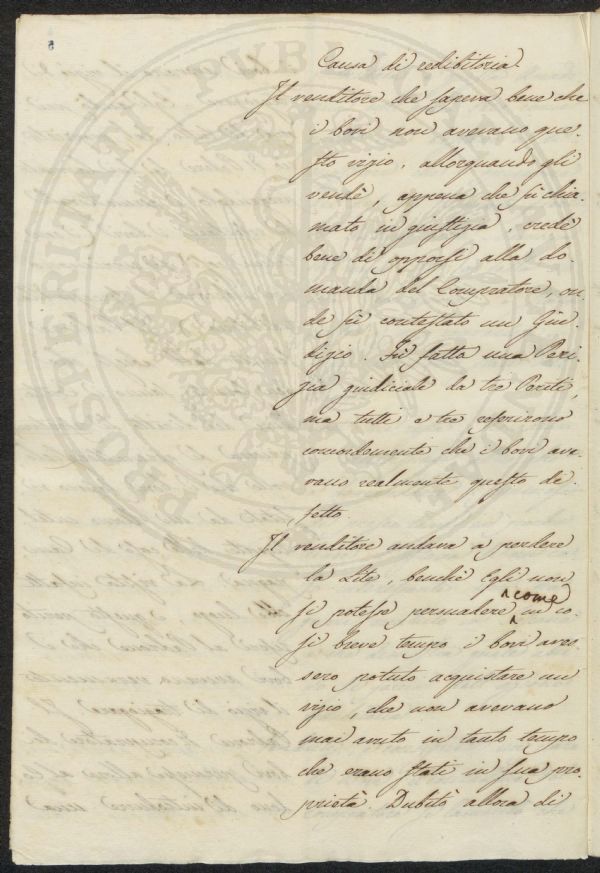 5
Causa di redibitoria.
Il venditore che sapeva bene che
i bovi non avevano que-
sto vizio, allorquando gli
vendè, appena che fù chia-
mato in giustizia, credè
bene di opporsi alla do-
manda del Compratore, on-
de fù contestato un Giu-
dizio. Fù fatta una Peri-
zia giudiciale da tre Periti,
ma tutti e tre referirono
concordemente che i bovi ave-
vano realmente questo di-
fetto.
Il venditore andava a perdere
la Lite, benchè Egli non
si potesse persuadere come in co-
sì breve tempo i bovi aves-
sero potuto acquistare un
vizio, che non avevano
mai avuto in tanto tempo
che erano stati in sua pro-
prietà. Dubitò allora di